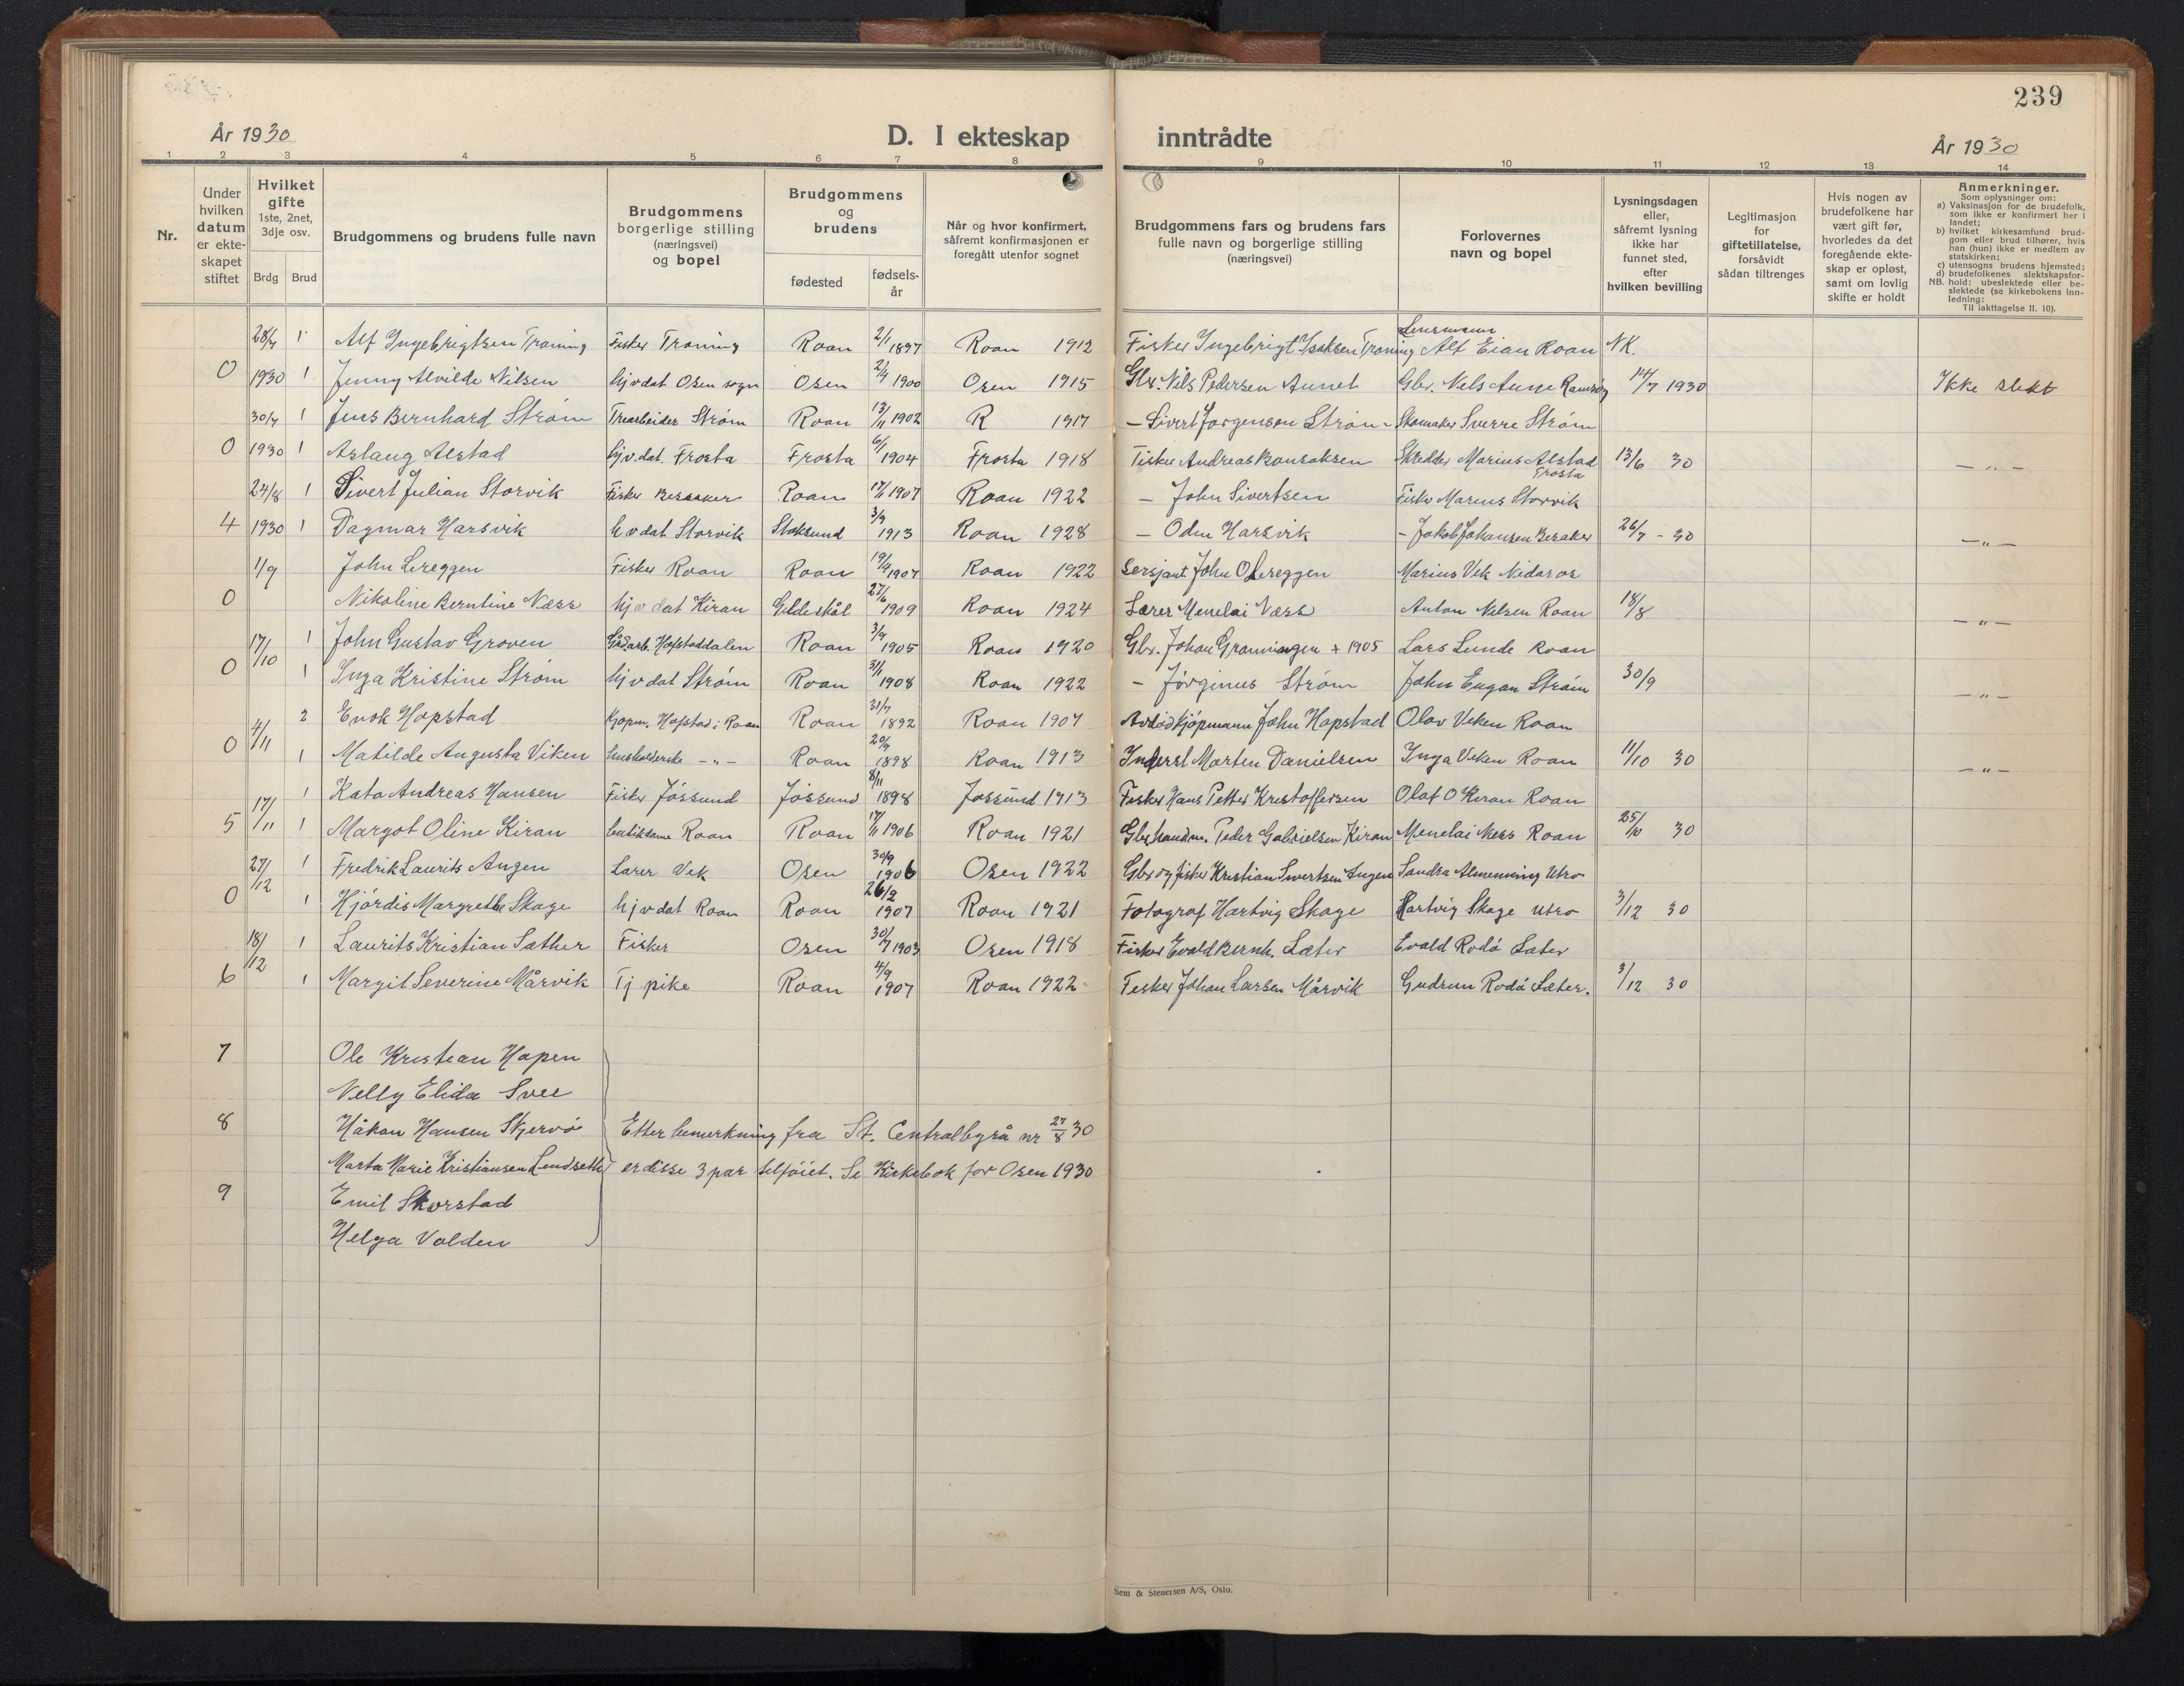 239
År 1930
D. I ekteskap inntrådte
År 1930
1 2 3 4 5 6 7 8 9 10 11 12 13 14
Nr.
Under hvilken datum er ekte- skapet stiftet
Hvilket gifte 1ste, 2net, 3dje osv.
Brdg Brud
Brudgommens og brudens fulle navn
Brudgommens borgerlige stilling (næringsvei) og bopel
Brudgommens og brudens
fødested fødsels- år
Når og hvor konfirmert, såfremt konfirmasjonen er foregått utenfor sognet
Brudgommens fars og brudens fars fulle navn og borgerlige stilling (næringsvei)
Forlovernes navn og bopel
Lysningsdagen eller, såfremt lysning ikke har funnet sted, efter hvilken bevilling
Legitimasjon for giftetillatelse, forsåvidt sådan tiltrenges
Hvis nogen av brudefolkene har vært gift før, hvorledes da det foregående ekte- skap er opløst, samt om lovlig skifte er holdt
Anmerkninger.
Som oplysninger om:
a) Vaksinasjon for de brudefolk, som ikke er konfirmert her i landet;
b) hvilket kirkesamfund brud- gom eller brud tilhører, hvis han (hun) ikke er medlem av statskirken;
c) utensogns brudens hjemsted;
d) brudefolkenes slektskapsfor- hold: ubeslektede eller be- slektede (se kirkebokens inn- ledning:
NB.
Til iakttagelse II. 10).
Lensmann
28/7 1 Alf Ingebrigtsen Traning Fisker Traning Roan 2/1 1897 Roan 1912 Fisker Ingebrigt Isaksen Traning Alf Eian Roan NK.
0 1930 1 Jenny Alvilde Nilsen hjv dat Osen sogn Osen 2/4 1900 Osen 1915 Gbr. Nils Pedersen Aunet Gbr. Nels Aune 14/7 1930 Ikke slekt
30/7 1 Jens Bernhard Strøm Trearbeider Strøm Roan 13/11 1902 R 1917 – Sivert Jørgensen Strøm – Skomaker Sverre Strøm
0 1930 1 Aslaug Alstad hj.v.dat. Frosta Frosta 6/1 1904 Frosta 1918 Fisker Andreas Skredder Marius Alstad Frosta 13/6 30 – " –
24/8 1 Sivert Julian Storvik Fisker Bessaker Roan 17/11 1907 Roan 1922 – John Sivertsen Fisker Marius Storvik
4 1930 1 Dagmar Harsvik h v dat Storvik Stoksund 3/9 1913 Roan 1928 – Odin Harsvik – Jakob Johansen Besaker 26/7 – 30 – " –
1/9 John Lereggen Fisker Roan Roan 19/4 1907 Roan 1922 Sersjant John O Lereggen Marius Vik Nidaros
0 Nikoline Berntine Næss hj v dat Kiran Gildeskål 27/6 1909 Roan 1924 Lærer Menelai Næss Anton Nilsen Roan 18/8 – " –
17/10 1 John Gustav Groven Gårdarb. Hofstaddalen Roan 3/9 1905 Roan 1920 Gbr. Johan Granningen + 1905 Lars Lunde Roan
0 1 Inga Kristine Strøm hj v dat Strøm Roan 3/1 1908 Roan 1922 – Jørginus Strøm John Eugan Strøm 30/9 – " –
4/11 2 Enok Hopstad Kjøpm. Hofstad i Roan Roan 31/7 1892 Roan 1907 Avdød kjøpmann John Hopstad Olav Viken Roan
0 1 Matilde Augusta Viken husholderske – " – Roan 20/9 1898 Roan 1913 Inderst Morten Danielsen Inga Viken Roan 11/10 30 – " –
17/11 1 Kato Andreas Hansen Fisker Jøssund Jøssund 8/11 1898 Jøssund 1913 Fisker Hans Petter Kristoffersen Olaf O Kiran Roan
5 1 Margot Oline Kiran butikdame Roan Roan 17/11 1906 Roan 1921 Gbr handm. Peder Gabrielsen Kiran Menelai Ness Roan 25/10 30
27/12 1 Fredrik Laurits Angen Lærer Vik Osen 30/9 1906 Osen 1922 Gbr og fisker Kristian Sivertsen Angen Sandra Almenning Utro
0 1 Hjørdis Margrethe Skage hj v dat Roan Roan 26/2 1907 Roan 1921 Fotograf Hartvig Skage Hartvig Skage Utro 3/12 30
18/12 1 Laurits Kristian Sæther Fisker Osen 30/7 1903 Osen 1918 Fisker Evald Bernh. Sæter Evald Rodø Sæter
6 1 Margit Severine Mårvik Tj pike Roan 4/9 1907 Roan 1922 Fisker Johan Larsen Mårvik Gudrun Rodø Sæter. 3/12 30
7 Ole Kristian Hopen
Nelly Elida Svee
8 Håkon Hansen Skjervø Etter bemerkning fra St. Centralbyrå nr 27/8 30
Marta Marie Kristiansen Lendseth er disse 3 par tilføiet. Se Kirkebok for Osen 1930
9 Emil Skorstad
Helga Volden
Sem & Stenersen A/S, Oslo.